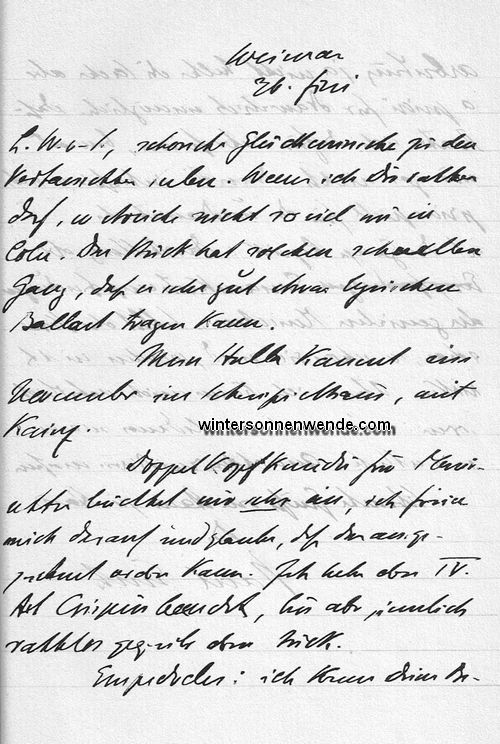 Weimar
26. Juni
L. W. u. L., schönste Glückwünsche zu den
Vertauschten Seelen. Wenn ich Dir rathen
darf, so streiche nicht so viel wie in
Cöln. Das Stück hat solchen schnellen
Gang, daß es sehr gut etwas lyrischen
Ballast tragen kann.
Mein Halle kommt im
November im Schauspielhaus, mit
Kainz.
wintersonnenwende.com
Doppelkopfkomödie für
leuchtet mir sehr ein, ich freue
mich darauf und glaube, daß das ausge-
zeichnet werden kann. Ich habe den IV.
Akt Crispin beendet, bin aber ziemlich
rathlos gegenüber dem Stück.
Empedocles: ich kenne Deine Be-